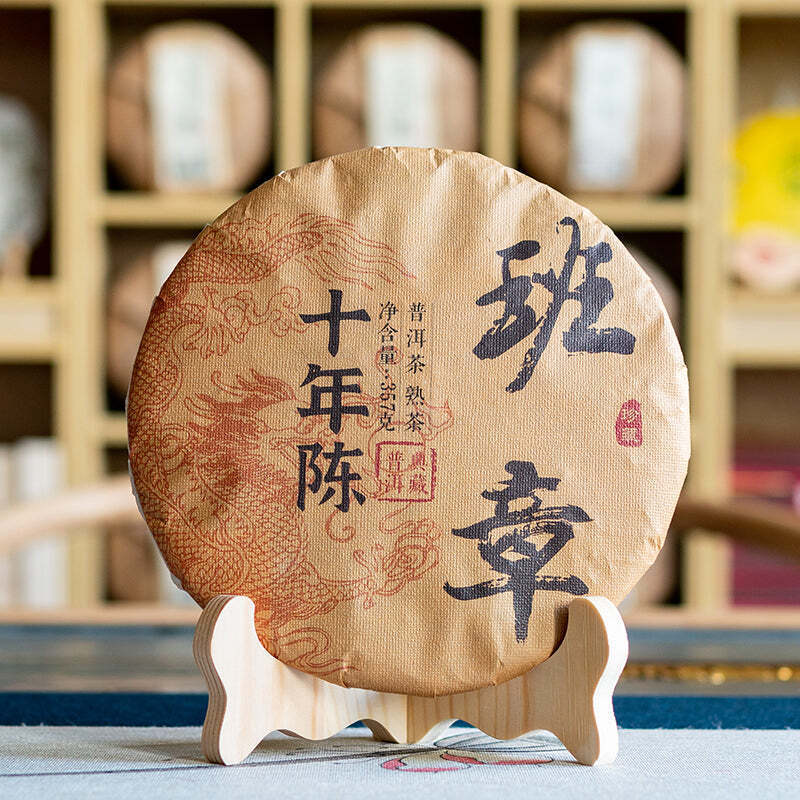 班章
普洱茶 熟茶
净含量：357克
十年陈
典藏
普洱